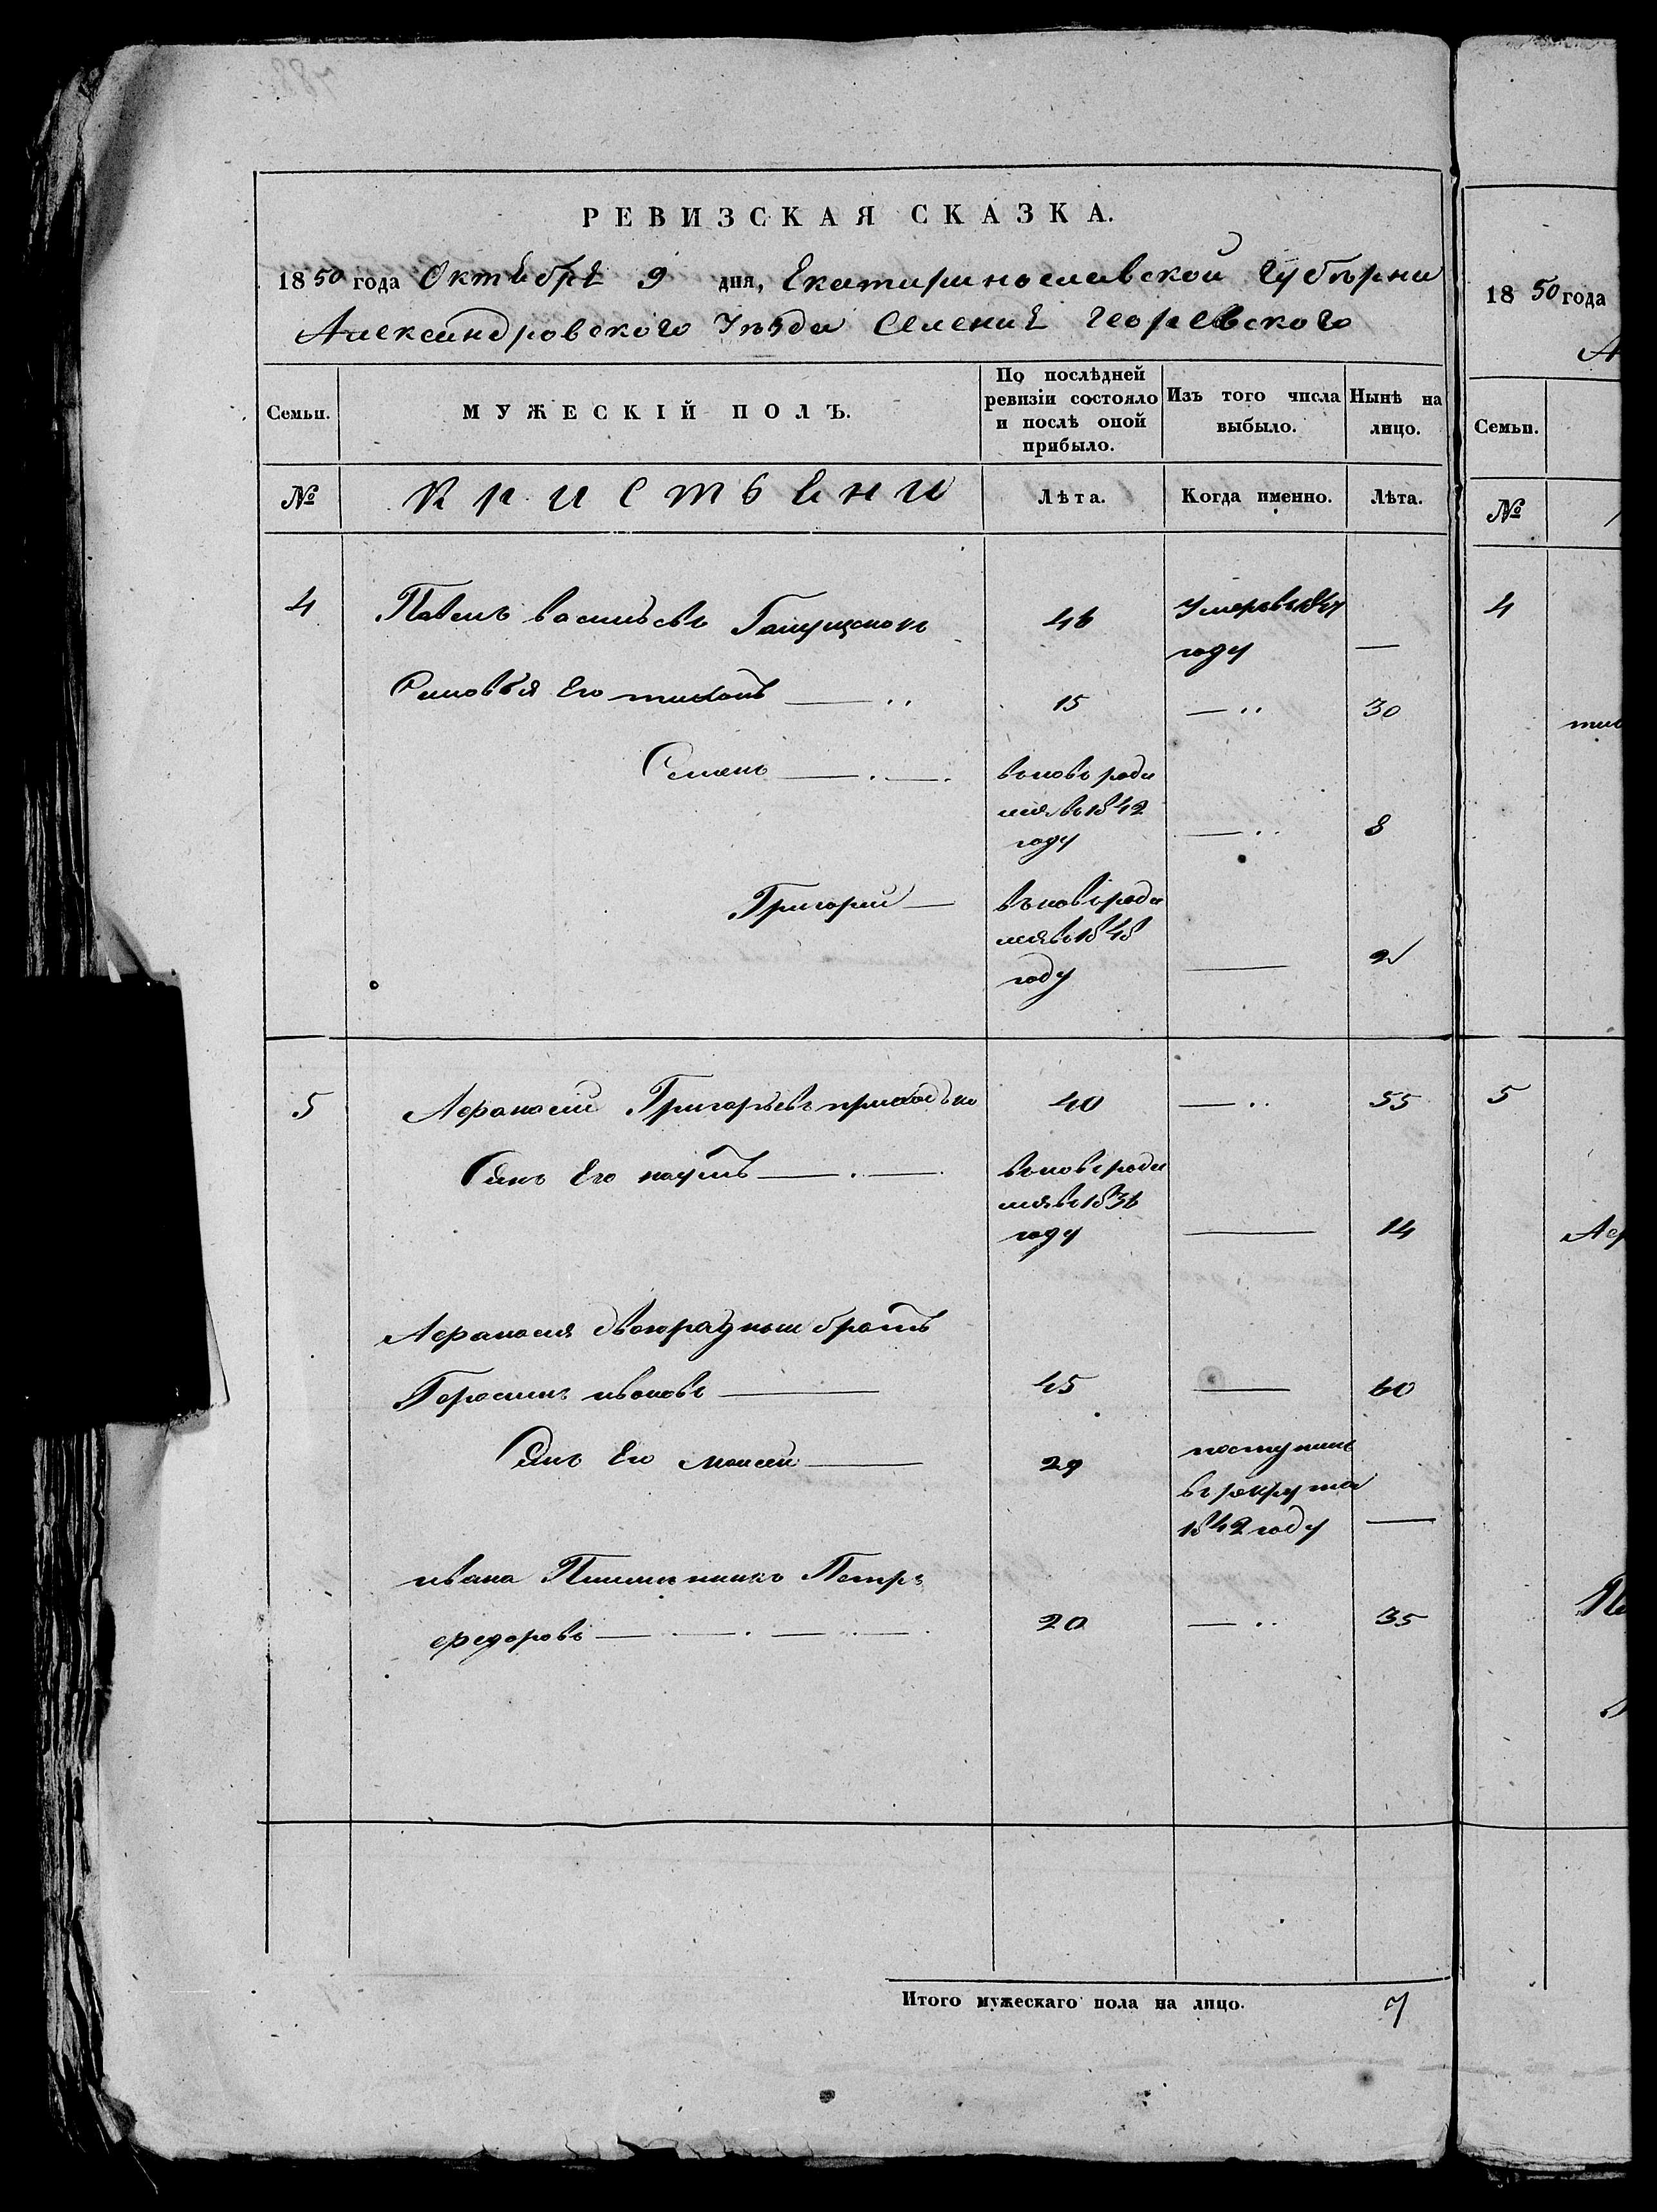 РЕВИЗСКАЯ СКАЗКА.
1850 года Октебрѣ 9 дня, Екатиринославской Губѣрни
Александровского Уѣзда Селениѣ Георгевского
Семьи.
МУЖЕСКІЙ ПОЛЪ.
По послѣдней ревизіи состояло и послѣ оной прибыло.
Изъ того числа выбыло.
Нынѣ на лицо.
№
Кристьени
Лѣта.
Когда именно.
Лѣта.
4 Павелъ васильевъ 46 Умеръ въ 1847
году —
Синовья Его тихонъ — 15 — 30
Семенъ — въновь роди
лся въ 1842
году — 8
Григорий — въновь роди
лся въ 1848
году — 2
5 Афанасий Григорьевъ приходько 40 — 55
Синъ Его наумъ — въновь роди
лся въ 1836
году — 14
Афанасия двоюрадным братъ
Герасимъ ивановъ — 45 — 60
Синъ Его моисей — 29 поступилъ
въ рекрута
1842 году —
ивана Племянникъ Петръ
федоровъ — 20 — 35
Итого мужескаго пола на лицо. 7
1850 года
А
Семьи.
№
4
тих
5
Аф